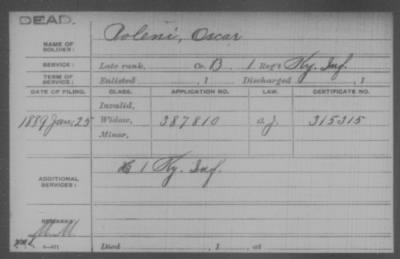 DEAD.
NAME OF SOLDIER: Poleni, Oscar
SERVICE: Late rank, Co. B 1 Reg't Ky. Inf.
TERM OF SERVICE: Enlisted , 1 Discharged , 1
DATE OF FILING. CLASS. APPLICATION NO. LAW. CERTIFICATE NO.
Invalid,
1889 Jan, 25 Widow, 387810 a.g. 315315
Minor,
ADDITIONAL SERVICES: 1 Ky. Inf.
REMARKS:
Died , 1 , at